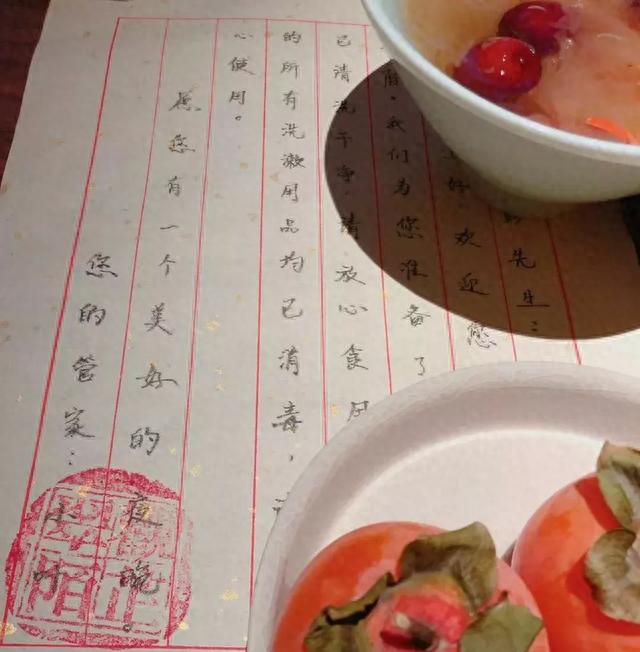 先生：
好。欢迎您
我们为您准备了
已清洗干净。请放心食用
的所有洗漱用品均已消毒，
心使用。
愿您有一个美好的夜晚。
您的管家：小叶